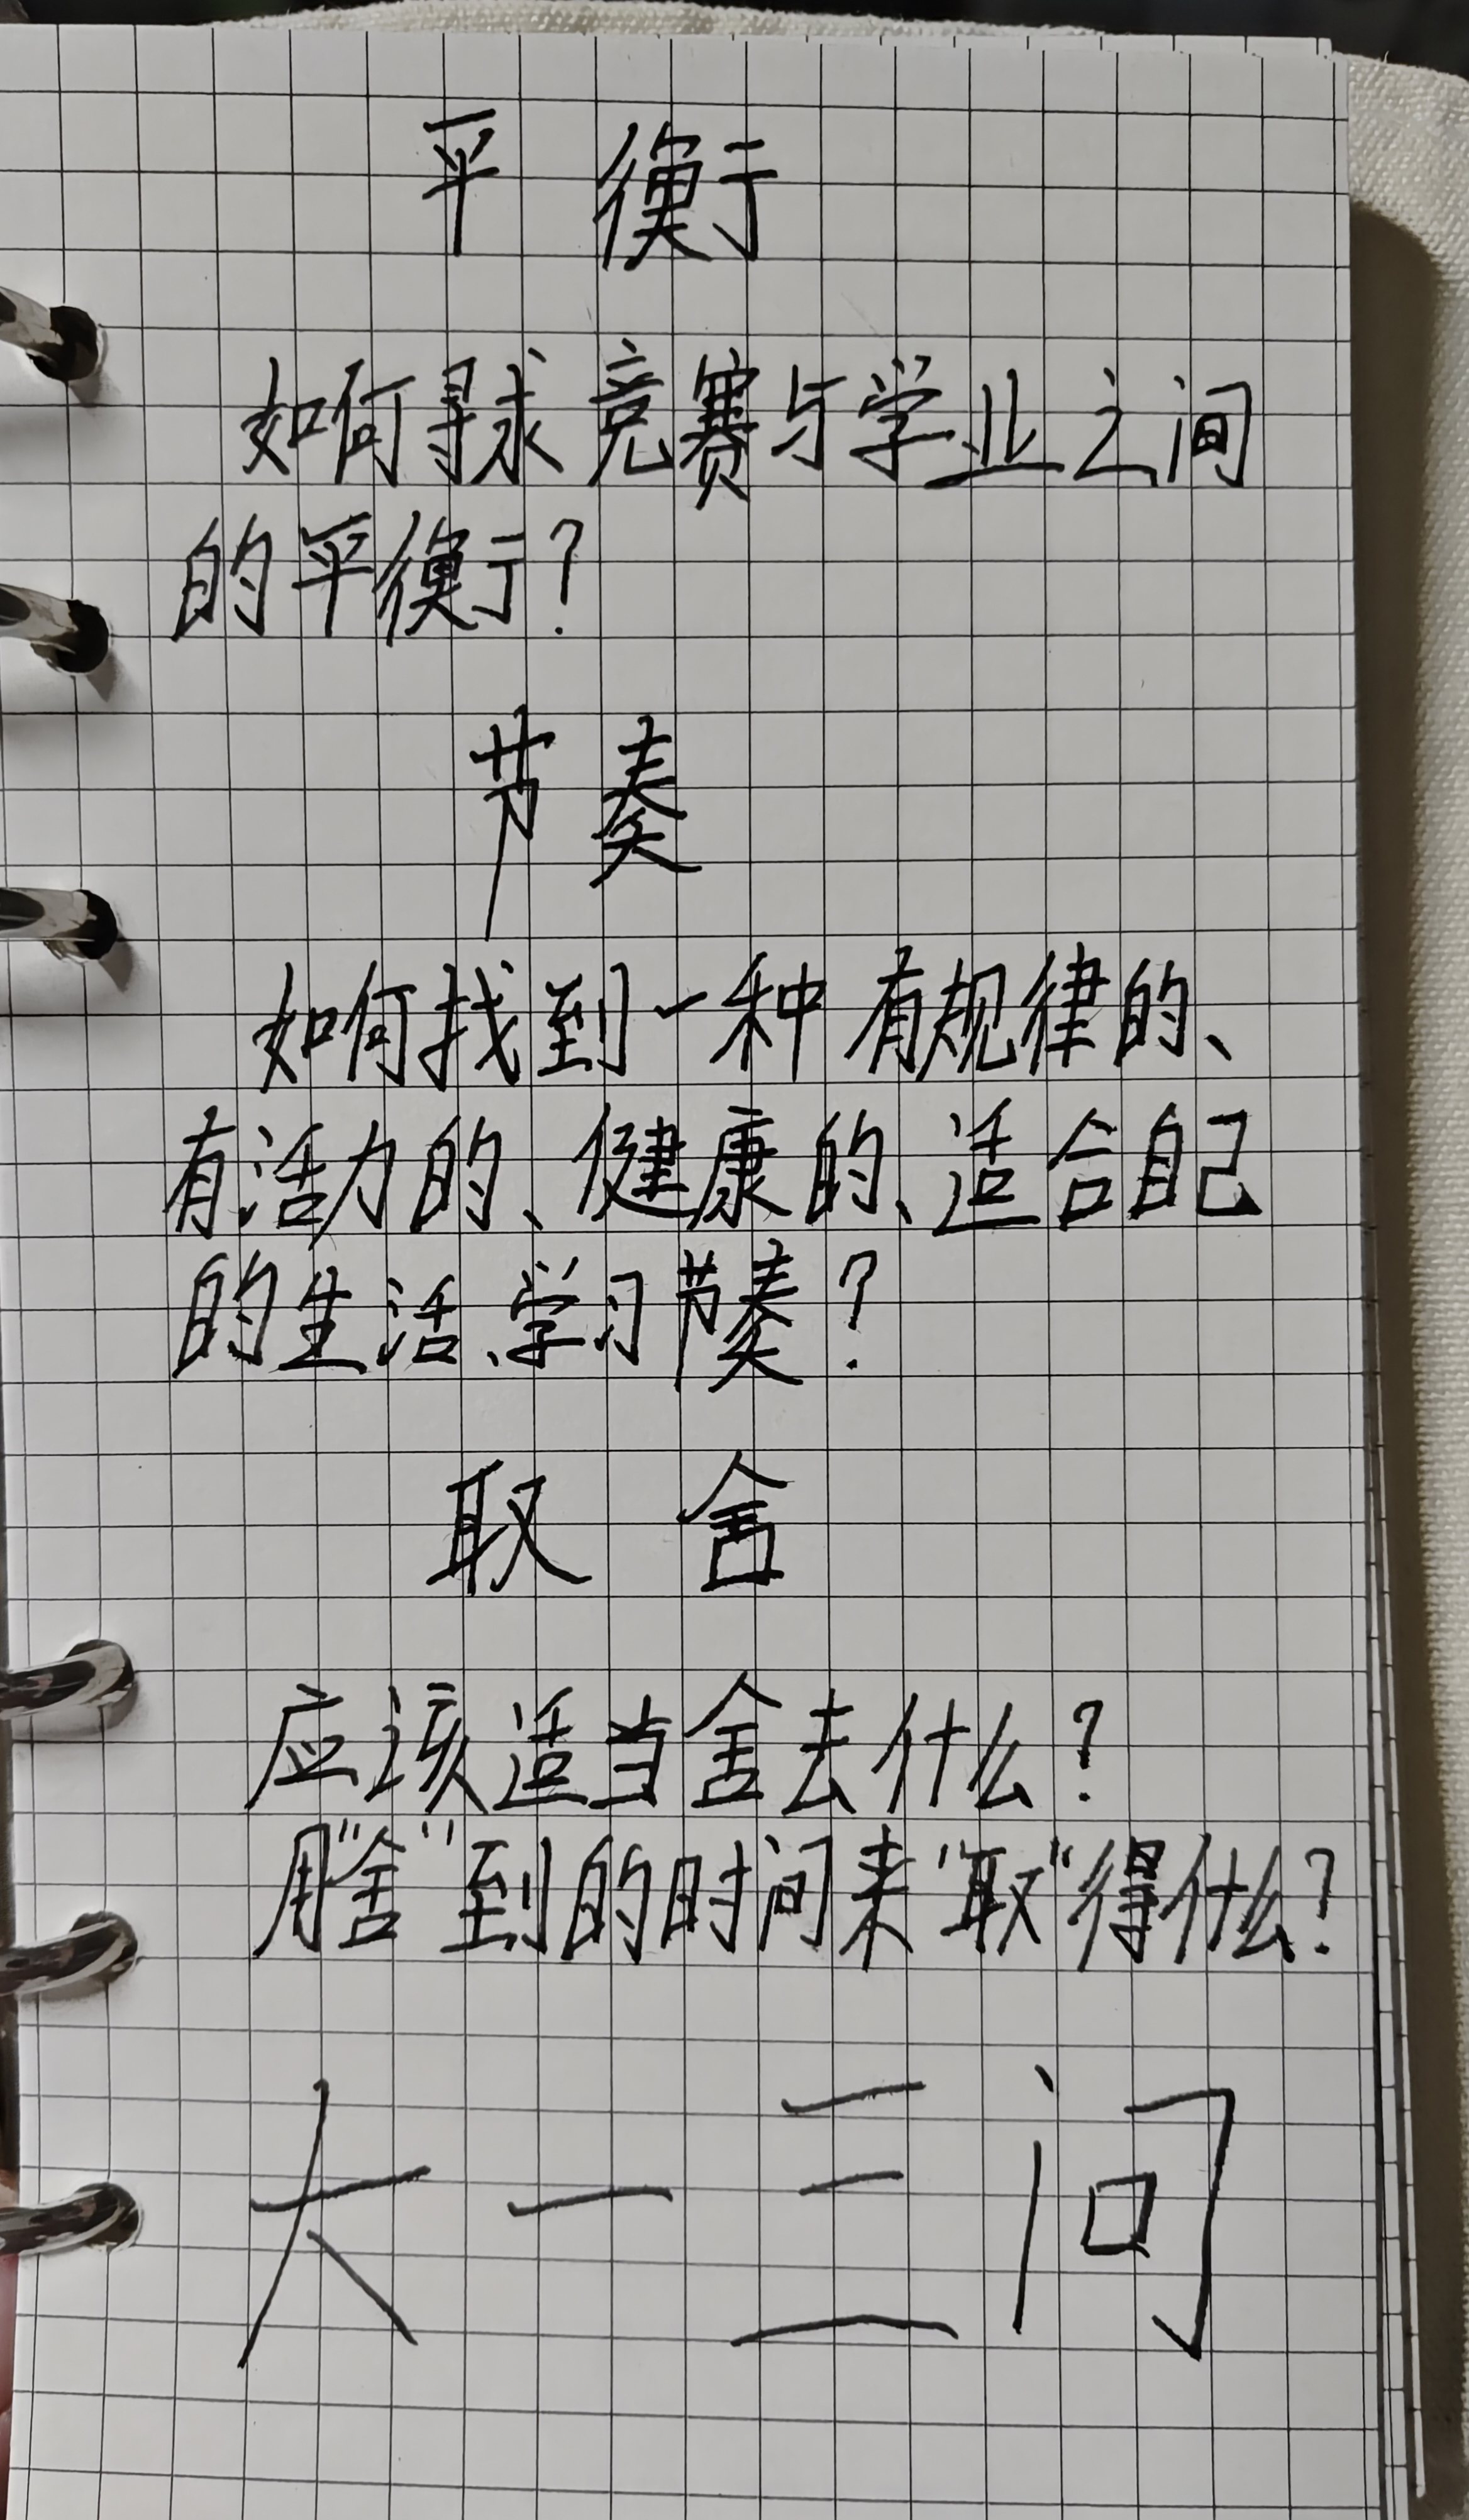 平衡
如何寻求竞赛与学业之间
的平衡?
节奏
如何找到一种有规律的、
有活力的、健康的、适合自己
的生活、学习节奏?
取舍
应该适当舍去什么?
用"舍"到的时间来"取"得什么?
大一三问